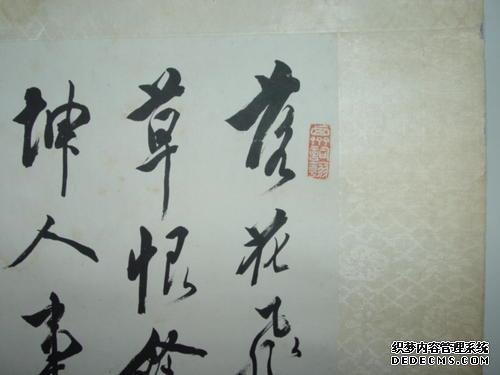 落花飛
草恨
坤人
织梦内容管理系统
DEDECMS.COM